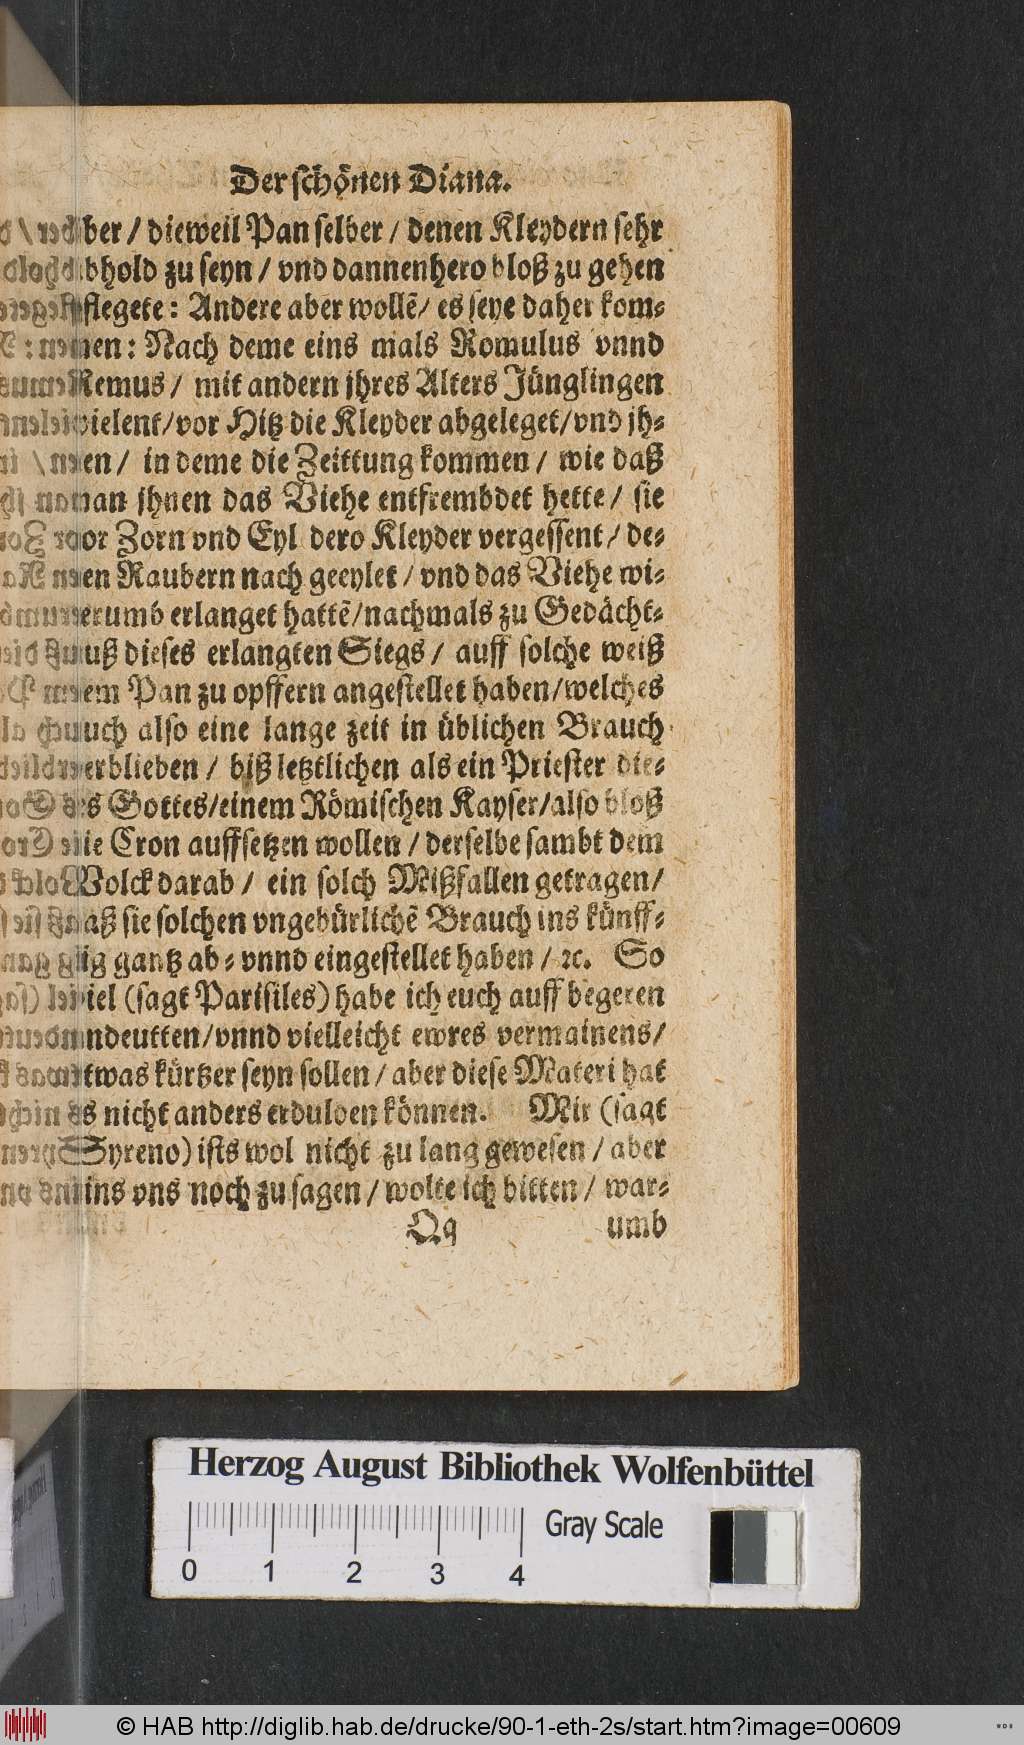 Der schönen Diana.
ber / dieweil Pan selber / denen Kleydern sehr
abhold zu seyn / vnd dannenhero bloß zu gehen
pflegete: Andere aber wollẽ / es seye daher kom-
men: Nach deme eins mals Romulus vnnd
Remus / mit andern jhres Alters Jünglingen
spielent / vor Hitz die Kleyder abgeleget / vnd jh-
nen / in deme die Zeittung kommen / wie daß
man jhnen das Viehe entfrembdet hette / sie
vor Zorn vnd Eyl dero Kleyder vergessent / de-
nen Raubern nach geeylet / vnd das Viehe wi-
derumb erlanget hattẽ / nachmals zu Gedächt-
nuß dieses erlangten Siegs / auff solche weiß
dem Pan zu opffern angestellet haben / welches
auch also eine lange zeit in üblichen Brauch
verblieben / biß letztlichen als ein Priester die-
ses Gottes / einem Römischen Kayser / also bloß
die Cron auffsetzen wollen / derselbe sambt dem
Volck darab / ein solch Mißfallen getragen /
daß sie solchen vngebürlichẽ Brauch ins künff-
tig gantz ab- vnnd eingestellet haben / ꝛc. So
viel (sagt Parisiles) habe ich euch auff begeren
andeutten / vnnd vielleicht ewres vermainens /
etwas kürtzer seyn sollen / aber diese Materi hat
es nicht anders erdulden können. Mir (sagt
Syreno) ists wol nicht zu lang gewesen / aber
eins vns noch zu sagen / wolte ich bitten / war-
Qq umb
Herzog August Bibliothek Wolfenbüttel
Gray Scale
0 1 2 3 4
© HAB http://diglib.hab.de/drucke/90-1-eth-2s/start.htm?image=00609